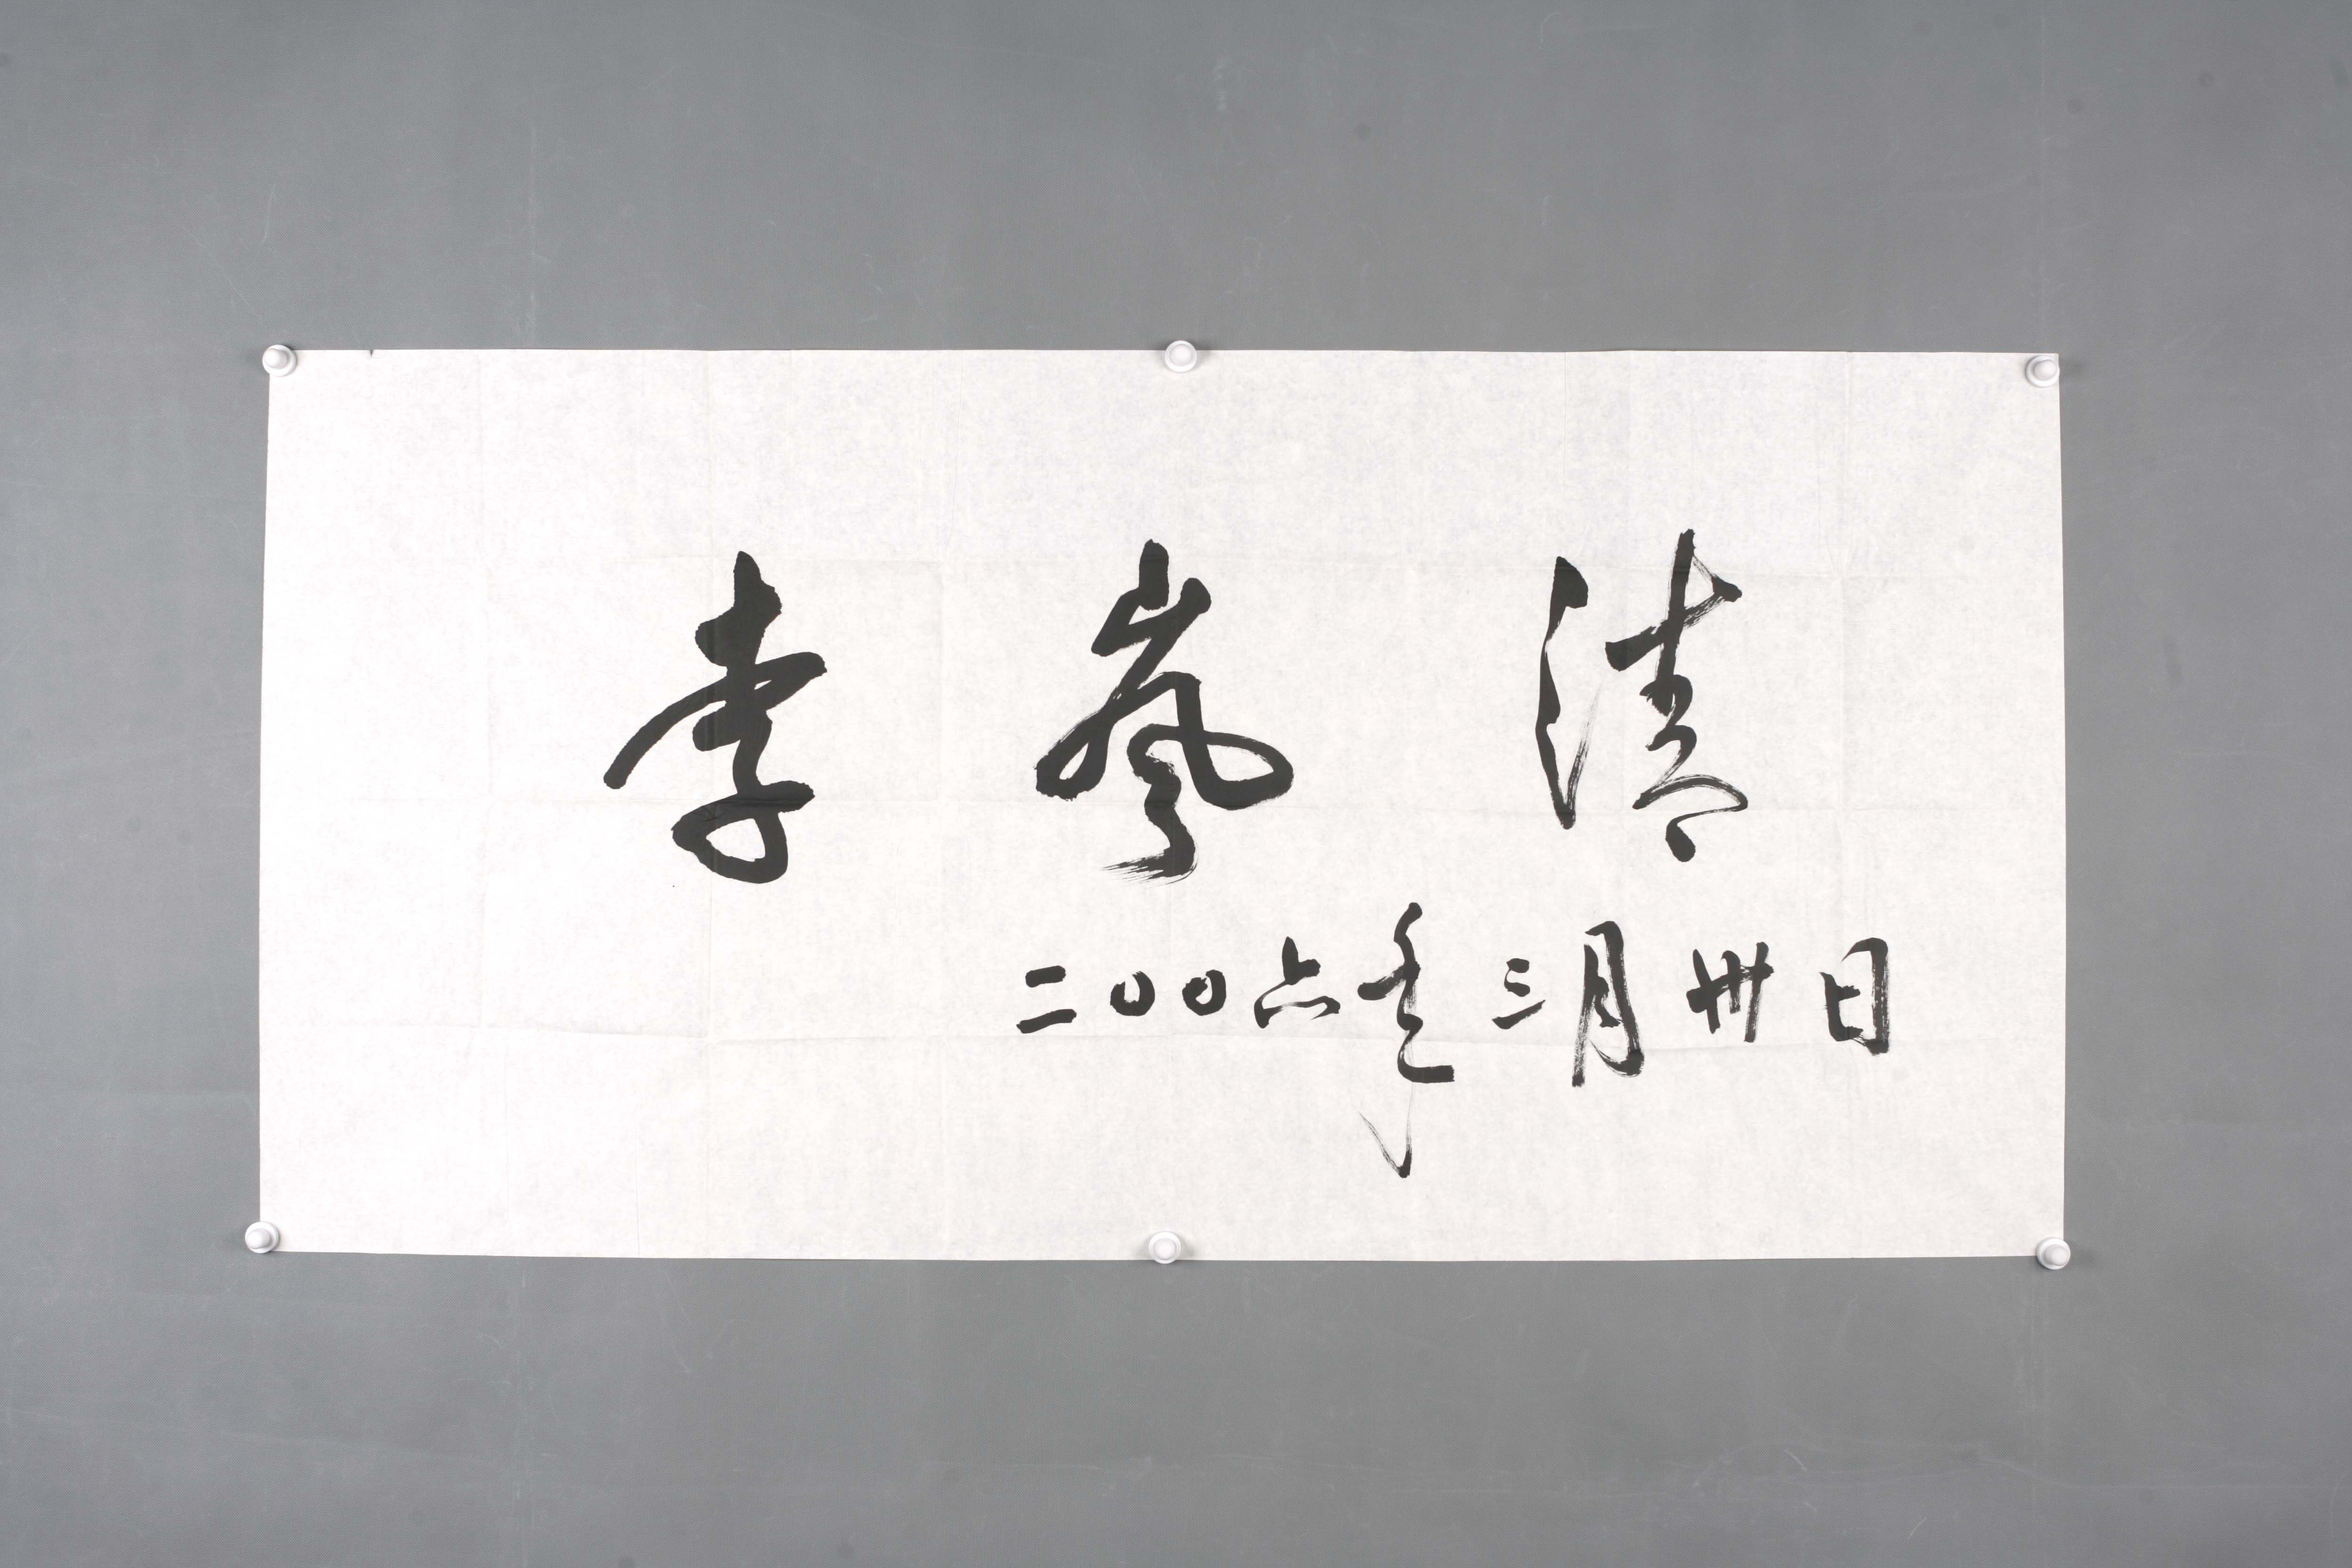 李嵐清
二〇〇六年三月卅日